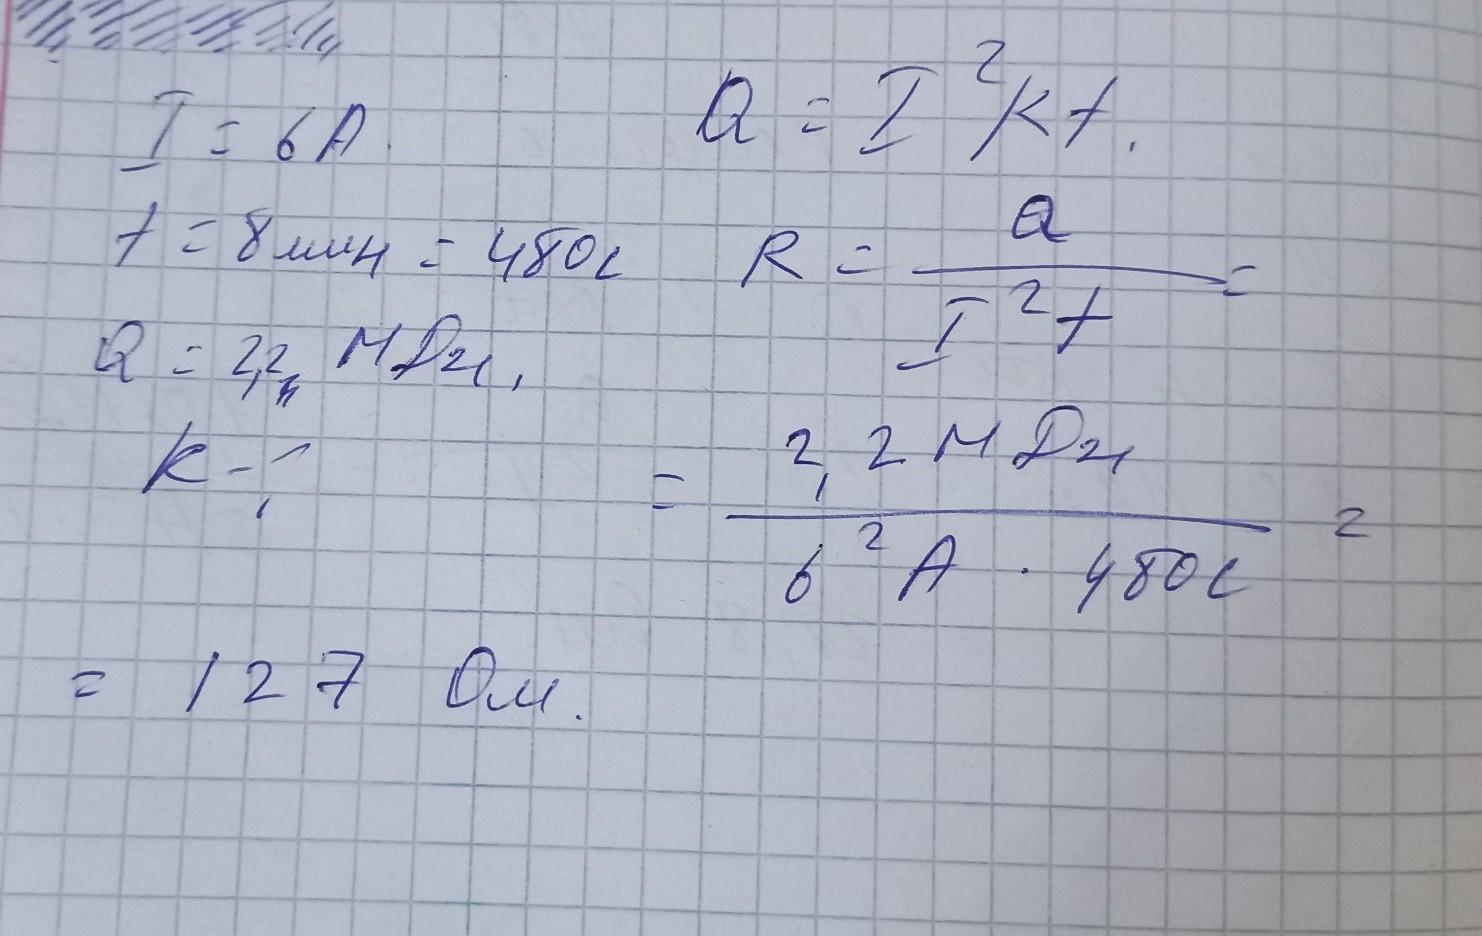 I = 6A.
t = 8мин = 480с
Q = 2,2 МДж,
R - ?
Q = I²Rt.
R = Q / I²t =
= 2,2 МДж / 6² А · 480с =
= 127 Ом.